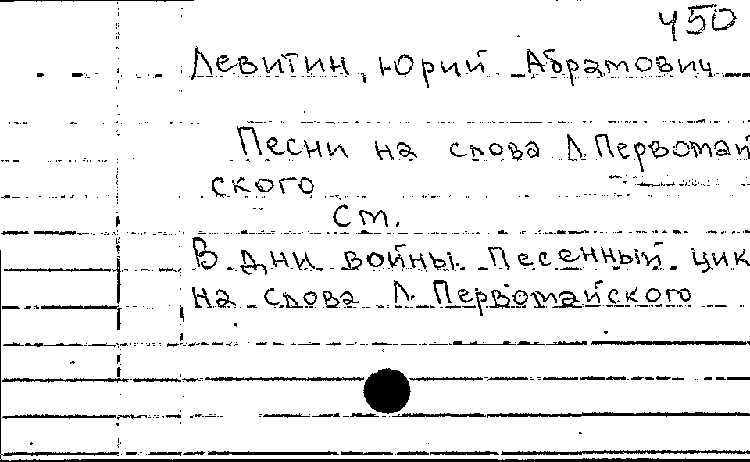 450
Левитин, Юрий Абрамович
Песни на слова Л. Первомай
ского
См.
В дни войны. Песенный цик
на слова Л. Первомайского